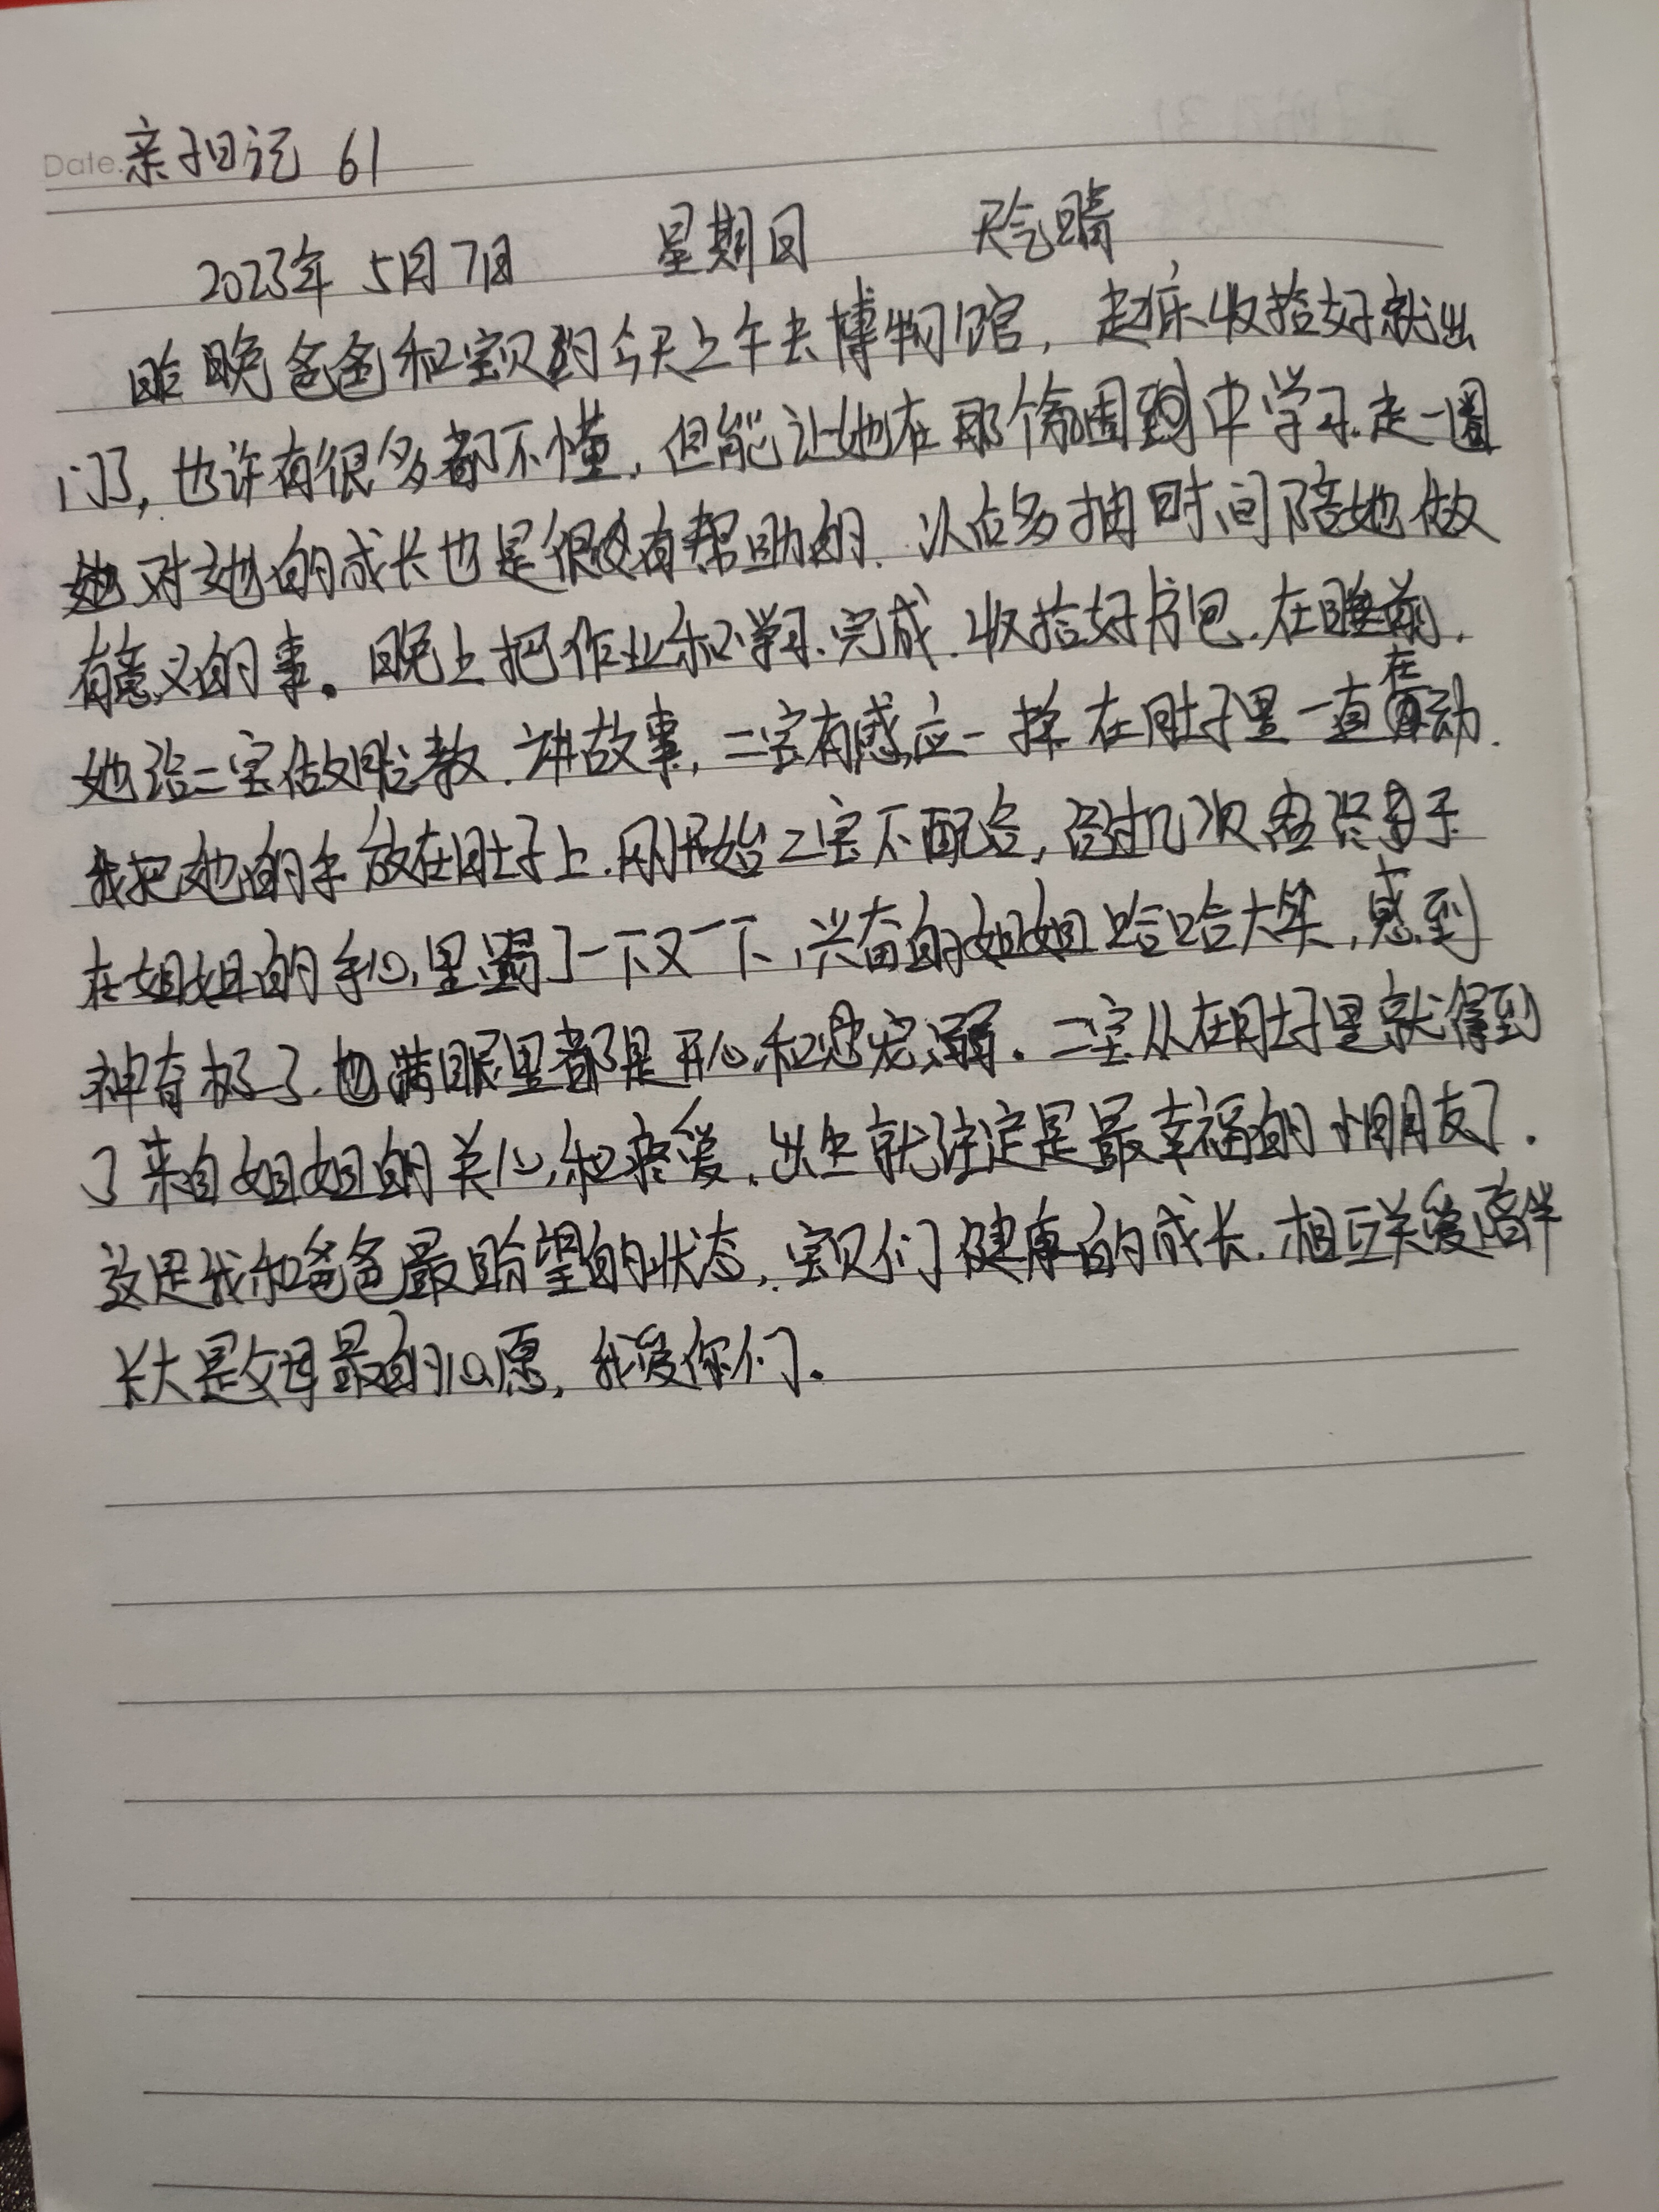 Date. 亲子日记 61
2023年 5月7日 星期日 天气晴
昨晚爸爸和宝贝约今天上午去博物馆，起床收拾好就出
门了，也许有很多都不懂，但能让她在那个氛围中学习.走一圈
对她的成长也是很有帮助的.以后多抽时间陪她做
有意义的事。晚上把作业和学习.完成.收拾好书包.在睡前.
她给二宝做胎教.讲故事，二宝有感应一样在肚子里一直在动.
我把她的手放在肚子上.刚开始二宝不配合，经过几次终于
在姐姐的手心里踢了一下又一下，兴奋的姐姐哈哈大笑，感到
神奇极了.满眼里都是开心和宠溺.二宝从在肚子里就得到
了来自姐姐的关心和疼爱.出生就注定是最幸福的小朋友了.
这是我和爸爸最盼望的状态，宝贝们健康的成长.相互关爱陪伴
长大是父母最的心愿，我爱你们.